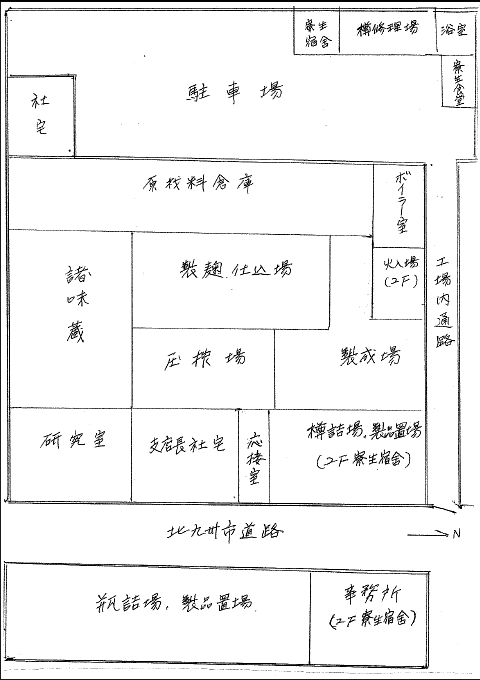 寮生
宿舎
樽修理場
浴室
寮生食堂
駐車場
社宅
原材料倉庫
ボイラー室
諸味蔵
製麹仕込場
火入場
(2F)
工場内通路
圧搾場
製成場
研究室
支店長社宅
応接室
樽詰場、製品置場
(2F寮生宿舎)
北九州市道路
N
瓶詰場、製品置場
事務所
(2F寮生宿舎)